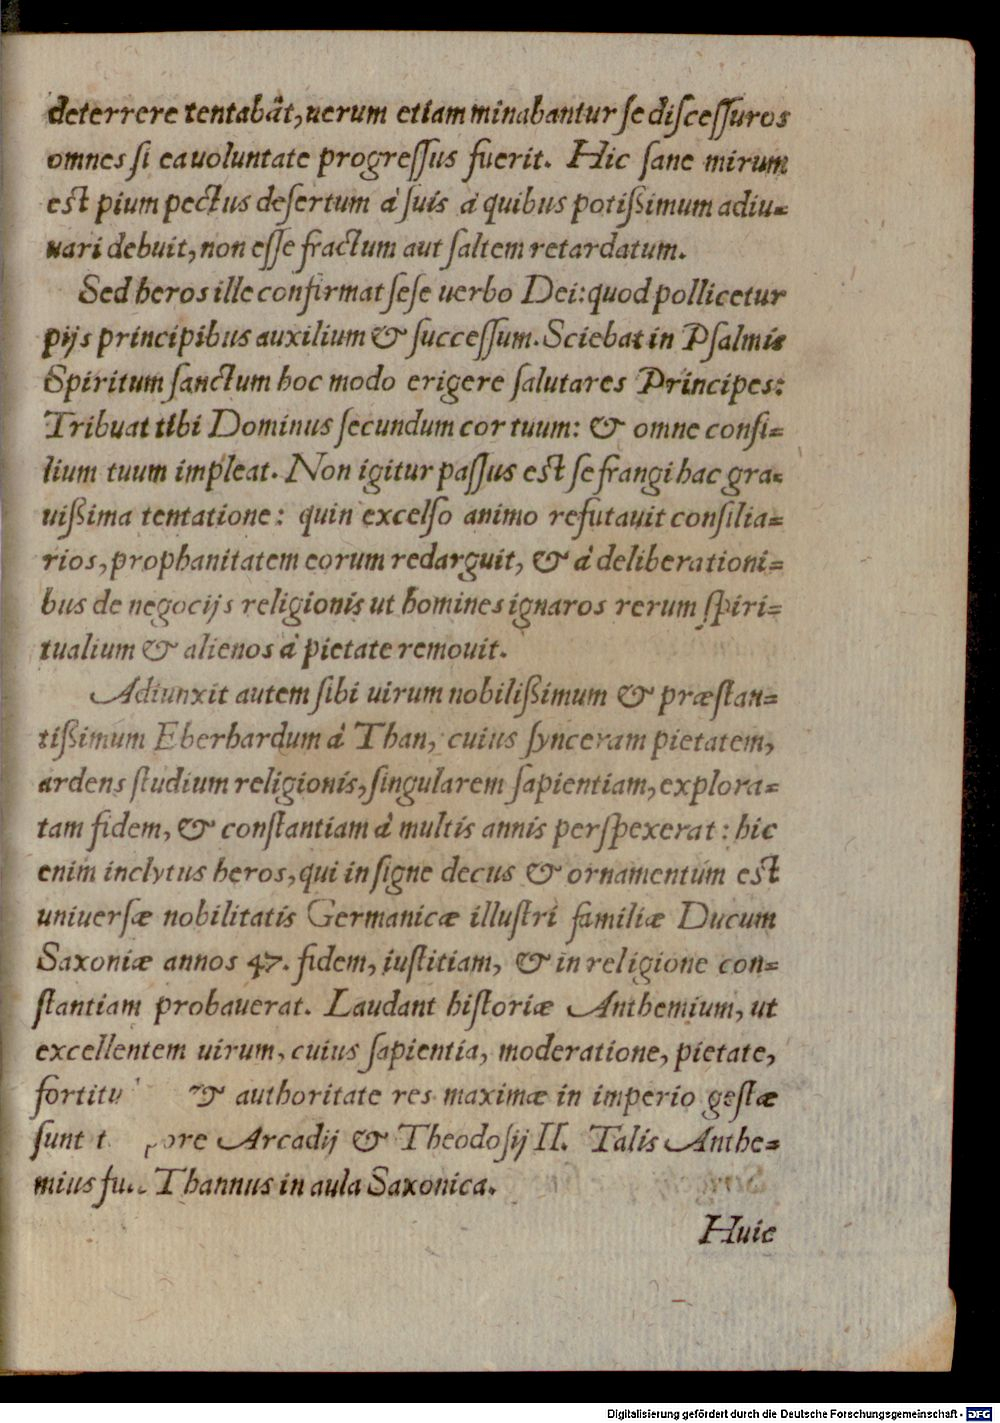 deterrere tentabāt, uerum etiam minabantur se discessuros
omnes si ea uoluntate progressus fuerit. Hic sane mirum
est pium pectus desertum à suis à quibus potißimum adiu=
uari debuit, non esse fractum aut saltem retardatum.
Sed heros ille confirmat sese uerbo Dei: quod pollicetur
pijs principibus auxilium & successum. Sciebat in Psalmis
Spiritum sanctum hoc modo erigere salutares Principes:
Tribuat tibi Dominus secundum cor tuum: & omne consi=
lium tuum impleat. Non igitur passus est se frangi hac gra=
uißima tentatione: quin excelso animo refutauit consilia=
rios, prophanitatem eorum redarguit, & à deliberationi=
bus de negocijs religionis ut homines ignaros rerum spiri=
tualium & alienos à pietate remouit.
Adiunxit autem sibi uirum nobilißimum & præstan=
tißimum Eberhardum à Than, cuius synceram pietatem,
ardens studium religionis, singularem sapientiam, explora=
tam fidem, & constantiam à multis annis perspexerat: hic
enim inclytus heros, qui insigne decus & ornamentum est
uniuersæ nobilitatis Germanicæ illustri familiæ Ducum
Saxoniæ annos 47. fidem, iustitiam, & in religione con=
stantiam probauerat. Laudant historiæ Anthemium, ut
excellentem uirum, cuius sapientia, moderatione, pietate,
& authoritate res maximæ in imperio gestæ
sunt Arcadij & Theodosij II. Talis Anthe=
mius Thannus in aula Saxonica.
Huic
Digitalisierung gefördert durch die Deutsche Forschungsgemeinschaft - DFG